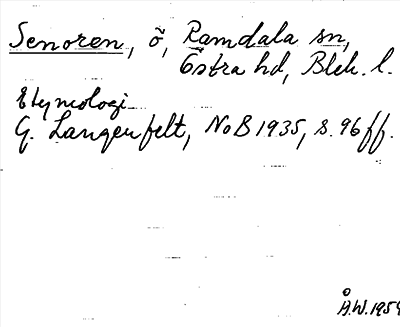 Senoren, ö, Ramdala sn,
Östra hd, Blek. l.
Etymologi
G. Langenfelt, NoB 1935, s. 96 ff.
Å.W. 1954